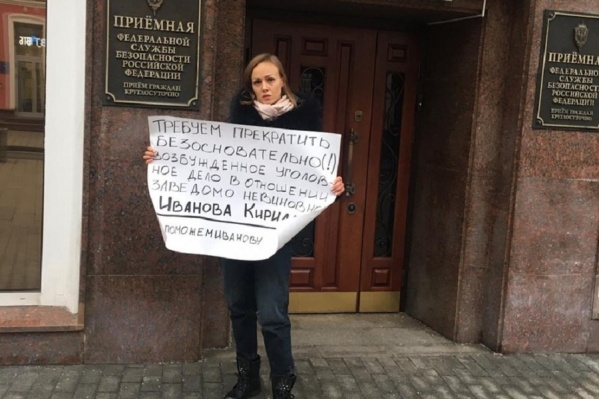 ПРИЁМНАЯ
ФЕДЕРАЛЬНОЙ
СЛУЖБЫ
БЕЗОПАСНОСТИ
РОССИЙСКОЙ
ФЕДЕРАЦИИ
ПРИЁМ ГРАЖДАН
КРУГЛОСУТОЧНО
ТРЕБУЕМ ПРЕКРАТИТЬ
БЕЗОСНОВАТЕЛЬНО(!)
ВОЗБУЖДЕННОЕ УГОЛОВ
НОЕ ДЕЛО В ОТНОШЕНИИ
ЗАВЕДОМО НЕВИНОВНО
ИВАНОВА КИРИЛ
ПОМОЖЕМИВАНОВУ
ПРИЁМНАЯ
ФЕДЕРАЛЬНОЙ
СЛУЖБЫ
БЕЗОПАСНОСТИ
РОССИЙСКОЙ
ФЕДЕРАЦИИ
ПРИЁМ ГРАЖДАН
КРУГЛОСУТОЧНО